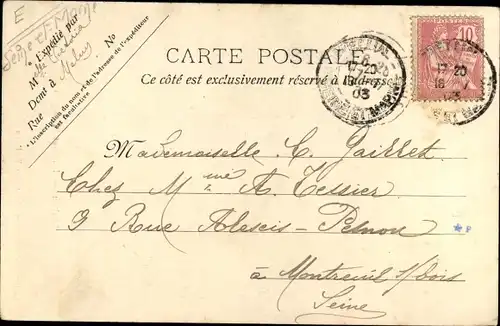 E
Seine et Marne
* Expédié par
M
Demt à Melun
Rue
No
* L'inscription du nom et de l'adresse de l'expéditeur
est facultative
CARTE POSTALE
Ce côté est exclusivement réservé à l'adresse.
10
17-20
18
03
Mademoiselle C. Gaillet
Chez Mme A. Tessier
9 Rue Alexis-Pesnon
à Montreuil s/bois
Seine